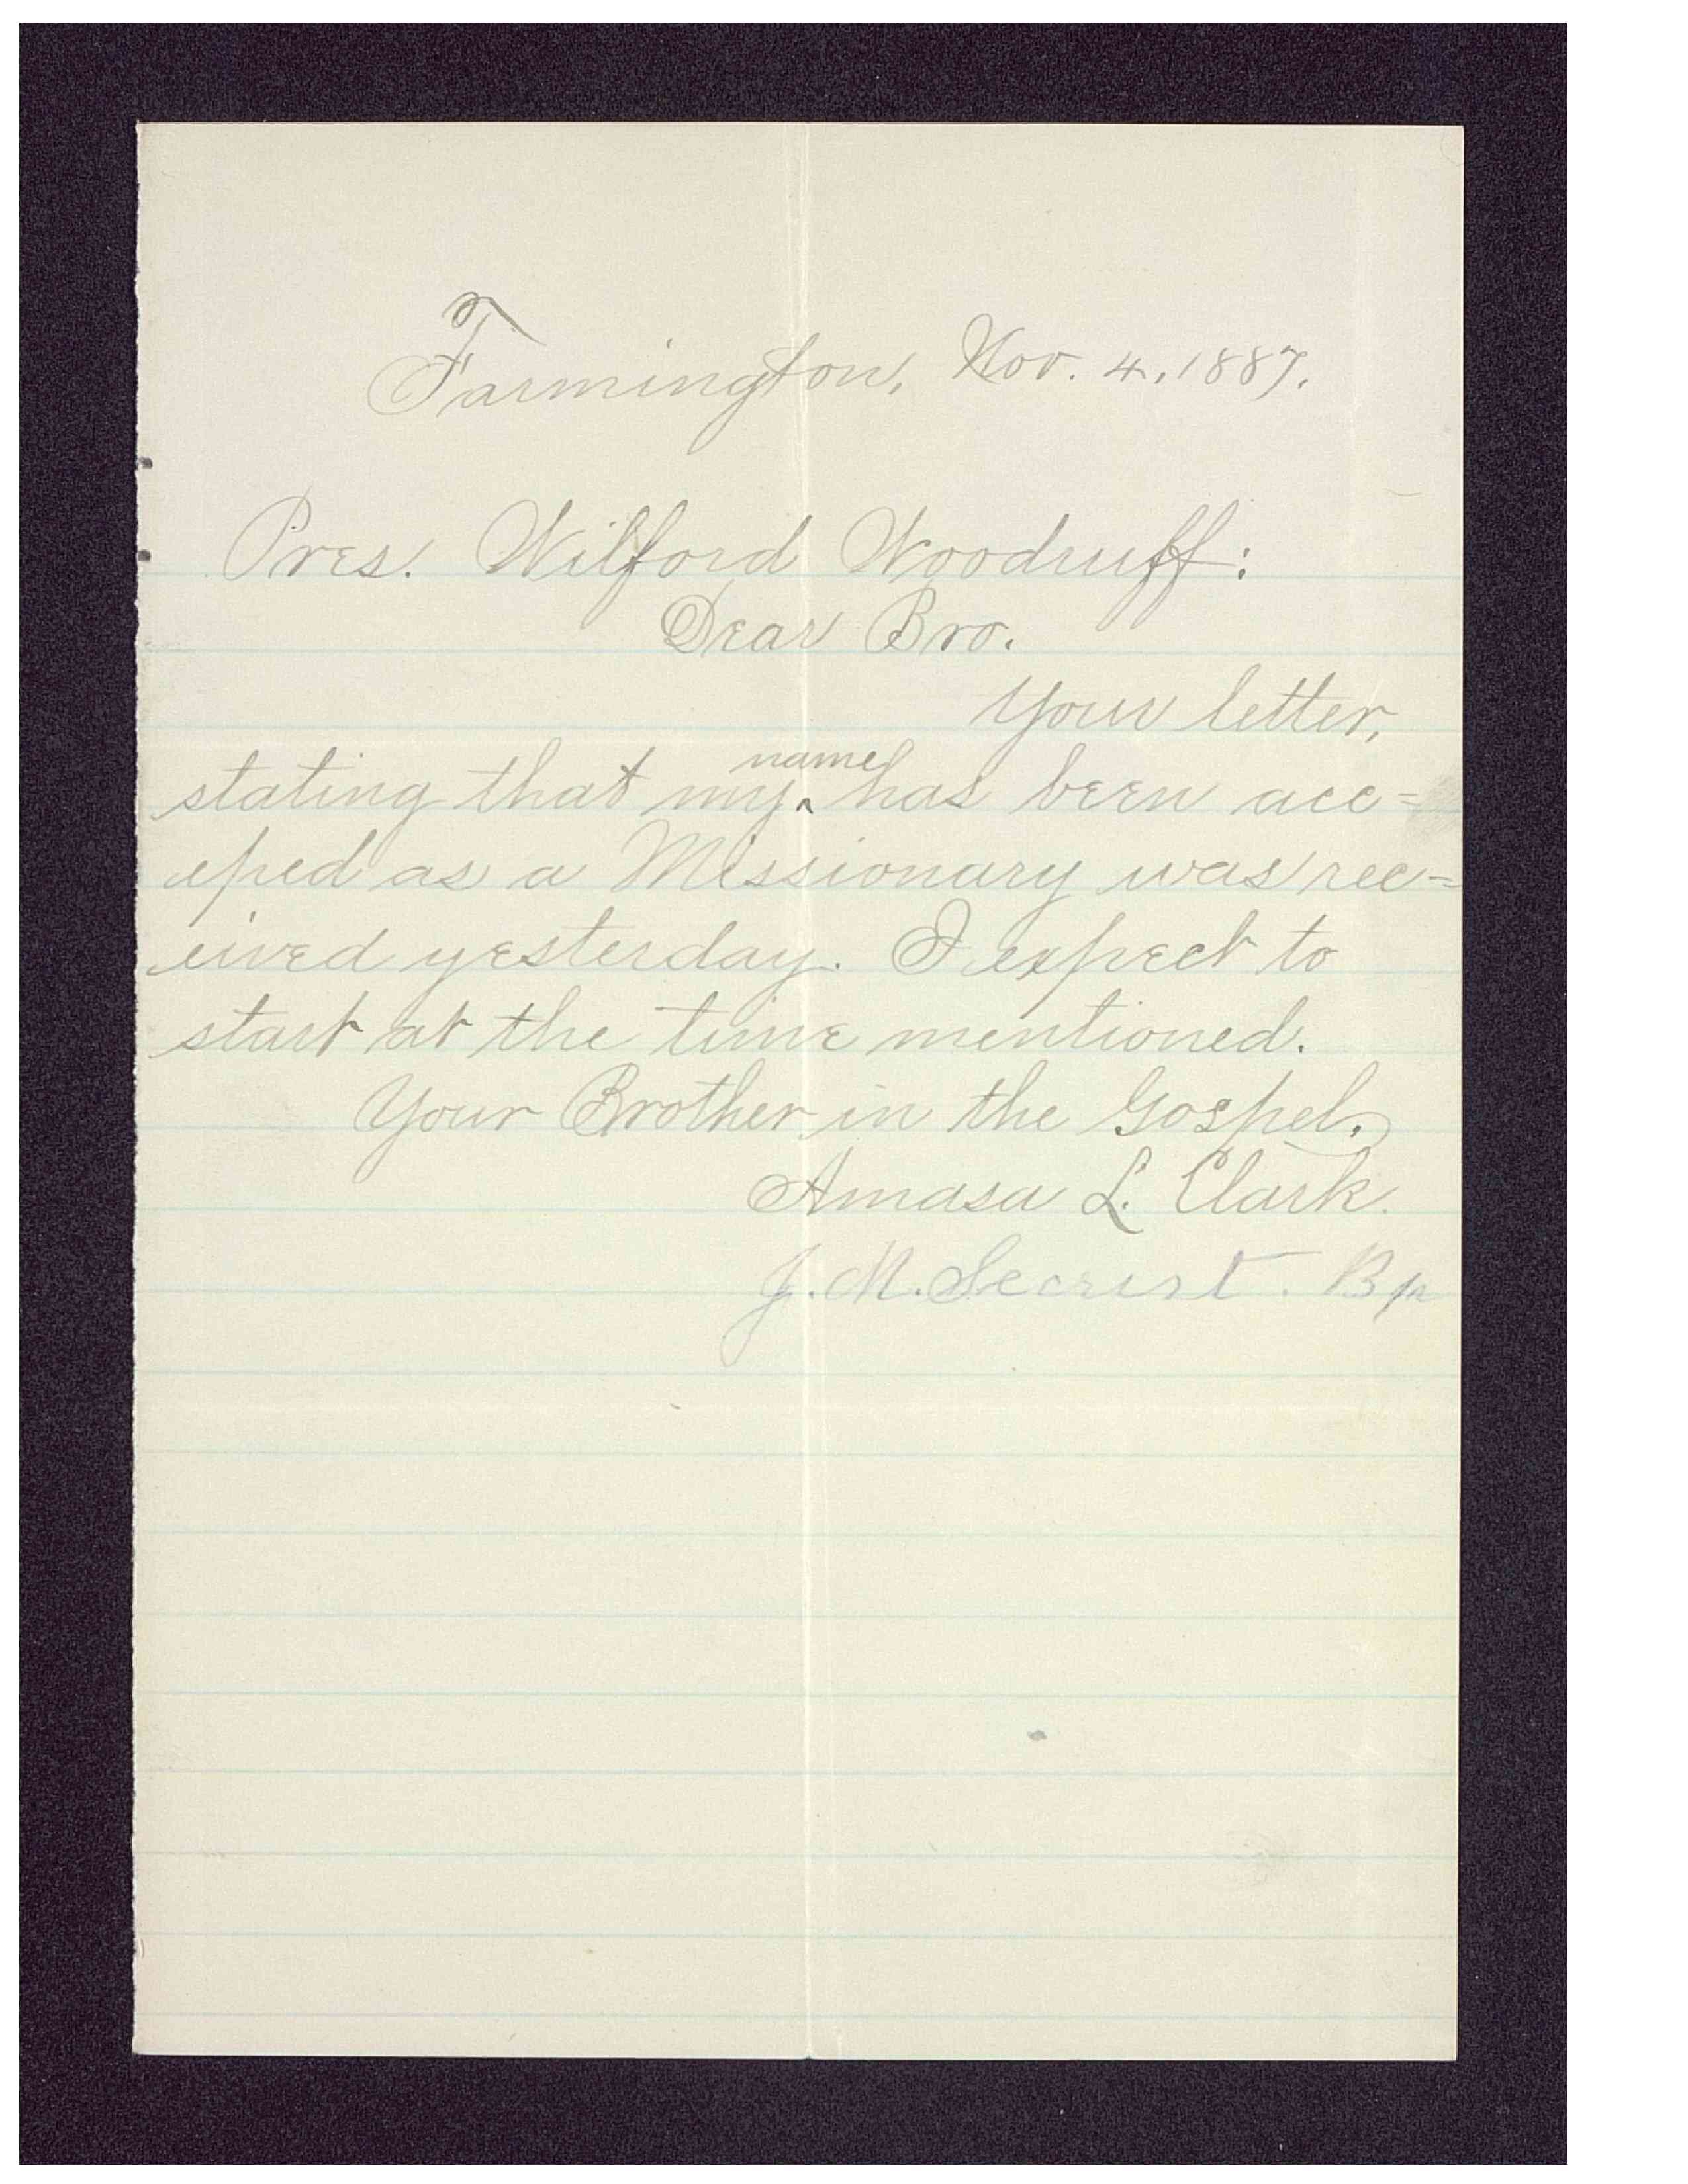 Farmington, Nov. 4, 1887.
Pres. Wilford Woodruff:
Dear Bro.
Your letter,
name
stating that my ‸ has been acc=
eped as a Missionary was rec=
eived yesterday. I expect to
start at the time mentioned.
Your Brother in the Gospel,
Amasa L. Clark.
J. M. Secrist. Bp